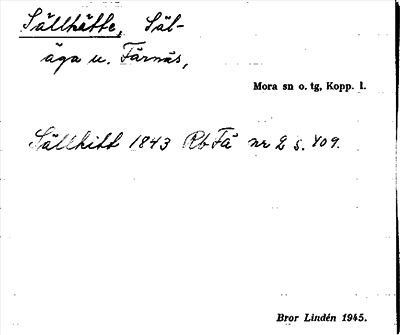 Sällhätte, Säl-
äga u. Färnäs,
Mora sn o. tg, Kopp. l.
Sällhitt 1843 Rb Fä nr 2 s. 409.
Bror Lindén 1945.